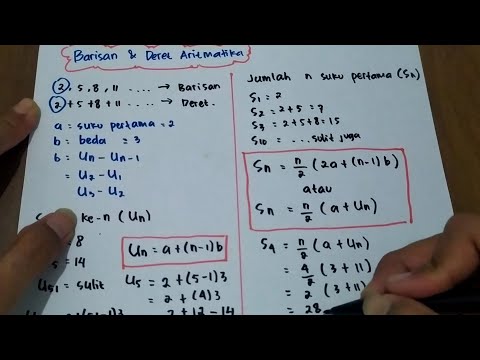 Barisan & Deret Aritmatika
2, 5, 8, 11 .... → Barisan
2 + 5 + 8 + 11 .... → Deret.
a = suku pertama = 2
b = beda = 3
b = Un - Un-1
= U2 - U1
U3 - U2
ke-n (Un)
= 8
= 14
U51 = sulit
Un = a + (n-1) b
U5 = 2 + (5-1) 3
= 2 + (4) 3
= 2 + 12 = 14
Jumlah n suku pertama (Sn)
S1 = 2
S2 = 2 + 5 = 7
S3 = 2 + 5 + 8 = 15
S10 = ... sulit juga
Sn = n/2 (2a + (n-1) b)
atau
Sn = n/2 (a + Un)
S4 = n/2 (a + Un)
= 4/2 (3 + 11)
= 2 (3 + 11)
= 28